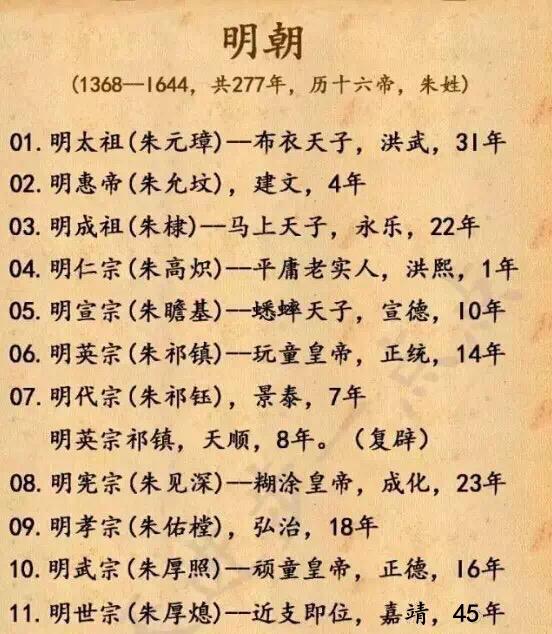 明朝
(1368—1644，共277年，历十六帝，朱姓)
01. 明太祖(朱元璋)—布衣天子，洪武，31年
02. 明惠帝(朱允炆)，建文，4年
03. 明成祖(朱棣)—马上天子，永乐，22年
04. 明仁宗(朱高炽)—平庸老实人，洪熙，1年
05. 明宣宗(朱瞻基)—蟋蟀天子，宣德，10年
06. 明英宗(朱祁镇)—玩童皇帝，正统，14年
07. 明代宗(朱祁钰)，景泰，7年
明英宗祁镇，天顺，8年。（复辟）
08. 明宪宗(朱见深)—糊涂皇帝，成化，23年
09. 明孝宗(朱佑樘)，弘治，18年
10. 明武宗(朱厚照)—顽童皇帝，正德，16年
11. 明世宗(朱厚熜)—近支即位，嘉靖，45年